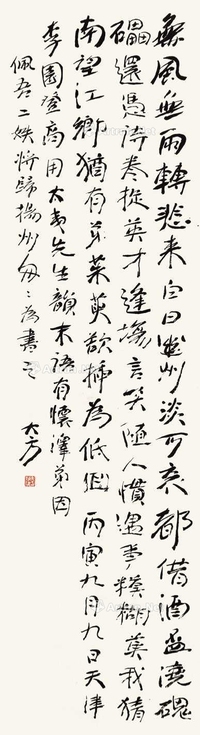 無風無雨轉悲來白日幽州淡可哀都借酒盃澆磈
礧還憑詩卷搃英才逢場言笑隨人慣遇事糢糊莫我猜
南望江鄉猶有弟茱萸欲插為低徊 丙寅九月九日天津
李園登高用太夷先生韻末語有懷澤弟因
佩吾二姪將歸揚州匆匆為書之
大方